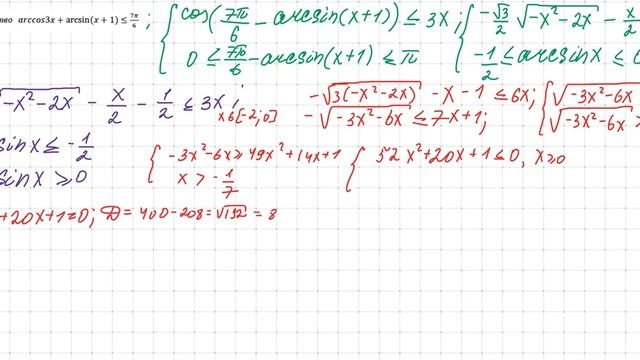 arccos3x + arcsin(x + 1) ≤ 7π/6 ; { cos(7π/6 - arcsin(x+1)) ≤ 3x ; { -√3/2 √-x²-2x - x/2
0 ≤ 7π/6 - arcsin(x+1) ≤ π
-1/2 ≤ arcsin x ≤
√-x²-2x - x/2 - 1/2 ≤ 3x ; x∈[-2;0]
-√3(-x²-2x) - x - 1 ≤ 6x ; { √-3x²-6x
-√-3x²-6x ≤ 7x+1 ; √-3x²-6x >
sin x ≤ -1/2
sin x ≥ 0
{ -3x²-6x ≥ 49x²+14x+1 { 52x²+20x+1 ≤ 0, x≥0
x > -1/7
+20x+1=0; D = 400-208 = √192 = 8